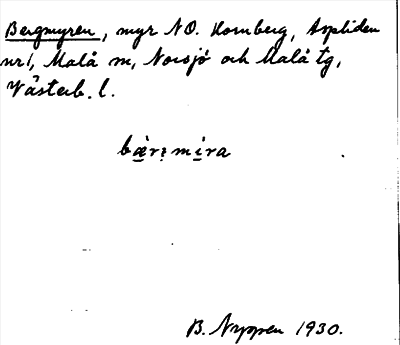 Bergmyren, myr NO. Kornberg, Aspliden
nr 1, Malå sn, Norsjö och Malå tg,
Västerb. l.
bæ̀rʒmira
B. Nyppen 1930.